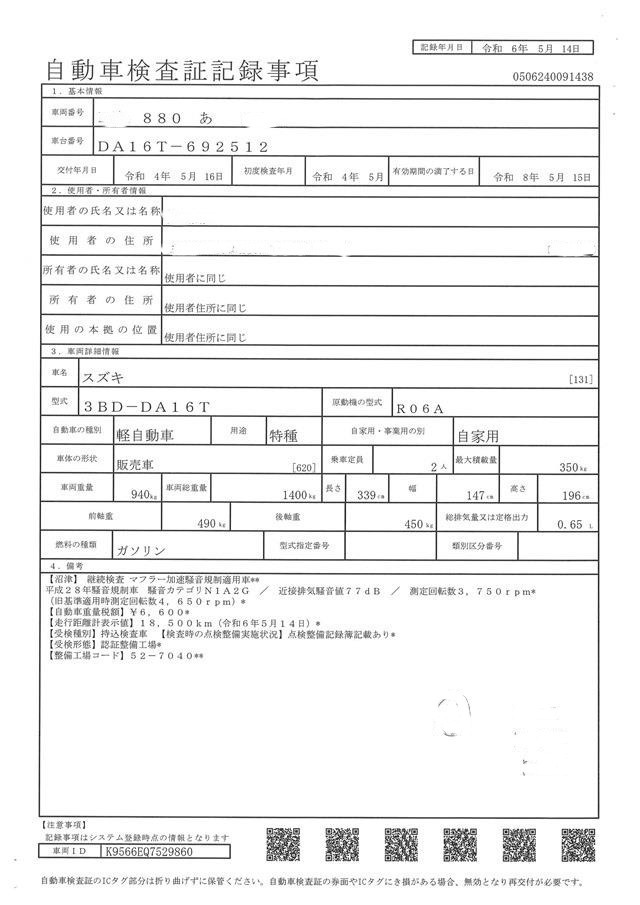 記録年月日 令和 6年 5月 14日
自動車検査証記録事項
0506240091438
1. 基本情報
車両番号 880 あ
車台番号 DA16T-692512
交付年月日 令和 4年 5月 16日 初度検査年月 令和 4年 5月 有効期間の満了する日 令和 8年 5月 15日
2. 使用者・所有者情報
使用者の氏名又は名称
使用者の住所
所有者の氏名又は名称 使用者に同じ
所有者の住所 使用者住所に同じ
使用の本拠の位置 使用者住所に同じ
3. 車両詳細情報
車名 スズキ [131]
型式 3BD-DA16T 原動機の型式 R06A
自動車の種別 軽自動車 用途 特種 自家用・事業用の別 自家用
車体の形状 販売車 [620] 乗車定員 2人 最大積載量 350kg
車両重量 940kg 車両総重量 1400kg 長さ 339cm 幅 147cm 高さ 196cm
前軸重 490kg 後軸重 450kg 総排気量又は定格出力 0.65 L
燃料の種類 ガソリン 型式指定番号 類別区分番号
4. 備考
【沼津】 継続検査 マフラー加速騒音規制適用車**
平成28年騒音規制車 騒音カテゴリN1A2G / 近接排気騒音値77dB / 測定回転数3,750rpm*
(旧基準適用時測定回転数4,650rpm)*
【自動車重量税額】¥6,600*
【走行距離計表示値】18,500km(令和6年5月14日)*
【受検種別】持込検査車 【検査時の点検整備実施状況】点検整備記録簿記載あり*
【受検形態】認証整備工場*
【整備工場コード】52-7040**
【注意事項】
記録事項はシステム登録時点の情報となります
車両ID K9566EQ7529860
自動車検査証のICタグ部分は折り曲げずに保管ください。自動車検査証の券面やICタグにき損がある場合、無効となり再交付が必要です。